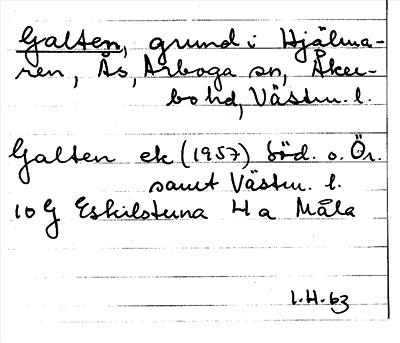 Galten, grund i Hjälma-
ren, Ås, Arboga sn, Åker-
bo hd, Västm. l.
Galten ek (1957) Söd. o. Ör.
samt Västm. l.
10 G Eskilstuna H a Måla
1.H.63